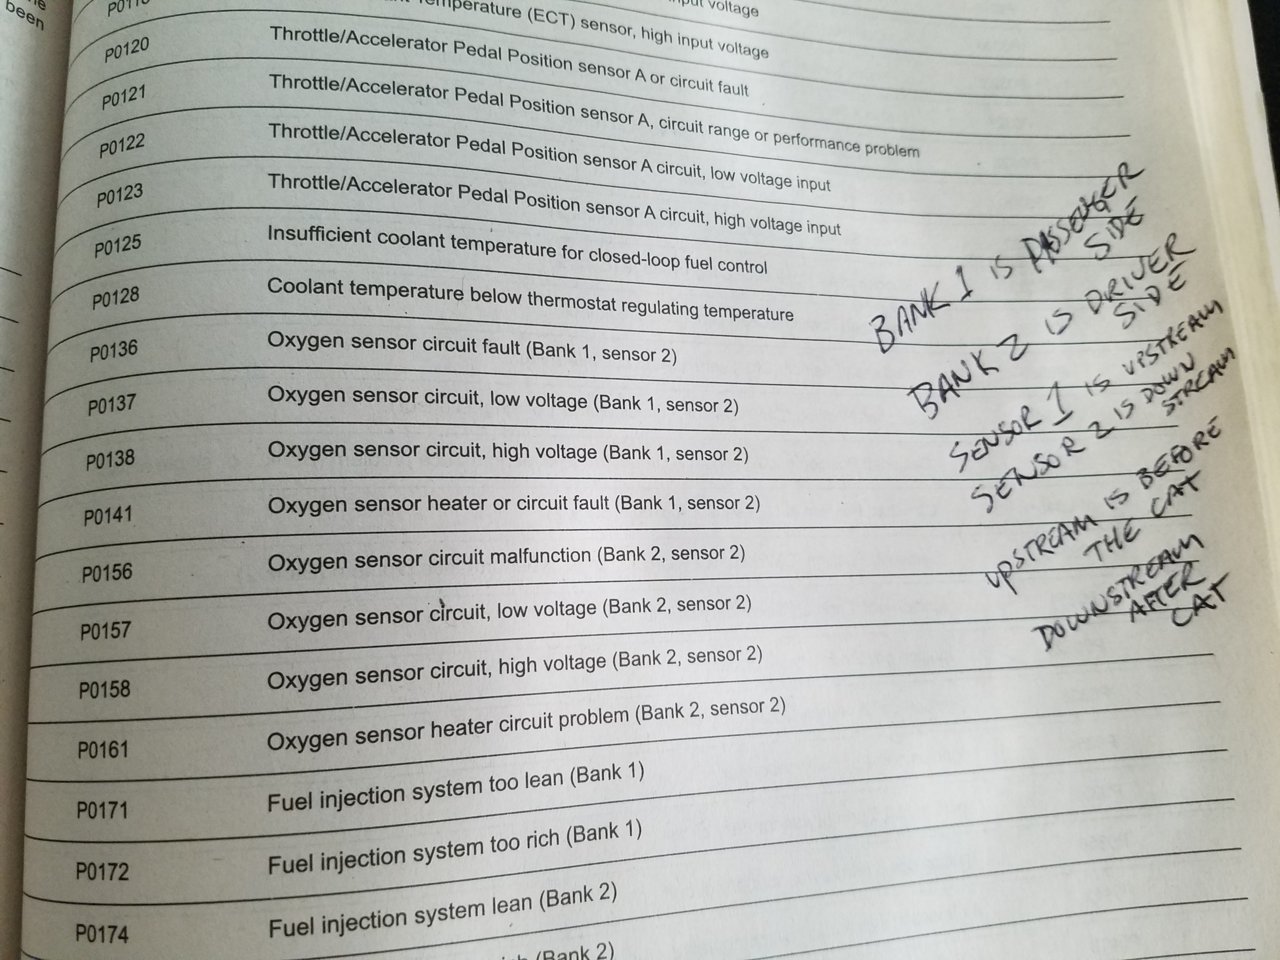 been
put voltage
Temperature (ECT) sensor, high input voltage
P0120 Throttle/Accelerator Pedal Position sensor A or circuit fault
P0121 Throttle/Accelerator Pedal Position sensor A, circuit range or performance problem
P0122 Throttle/Accelerator Pedal Position sensor A circuit, low voltage input
P0123 Throttle/Accelerator Pedal Position sensor A circuit, high voltage input
P0125 Insufficient coolant temperature for closed-loop fuel control
P0128 Coolant temperature below thermostat regulating temperature
P0136 Oxygen sensor circuit fault (Bank 1, sensor 2)
P0137 Oxygen sensor circuit, low voltage (Bank 1, sensor 2)
P0138 Oxygen sensor circuit, high voltage (Bank 1, sensor 2)
P0141 Oxygen sensor heater or circuit fault (Bank 1, sensor 2)
P0156 Oxygen sensor circuit malfunction (Bank 2, sensor 2)
P0157 Oxygen sensor circuit, low voltage (Bank 2, sensor 2)
P0158 Oxygen sensor circuit, high voltage (Bank 2, sensor 2)
P0161 Oxygen sensor heater circuit problem (Bank 2, sensor 2)
P0171 Fuel injection system too lean (Bank 1)
P0172 Fuel injection system too rich (Bank 1)
P0174 Fuel injection system lean (Bank 2)
(Bank 2)
BANK 1 IS PASSENGER
SIDE
BANK 2 IS DRIVER
SIDE
SENSOR 1 IS UPSTREAM
SENSOR 2 IS DOWN
STREAM
UPSTREAM IS BEFORE
THE CAT
DOWNSTREAM
AFTER
CAT